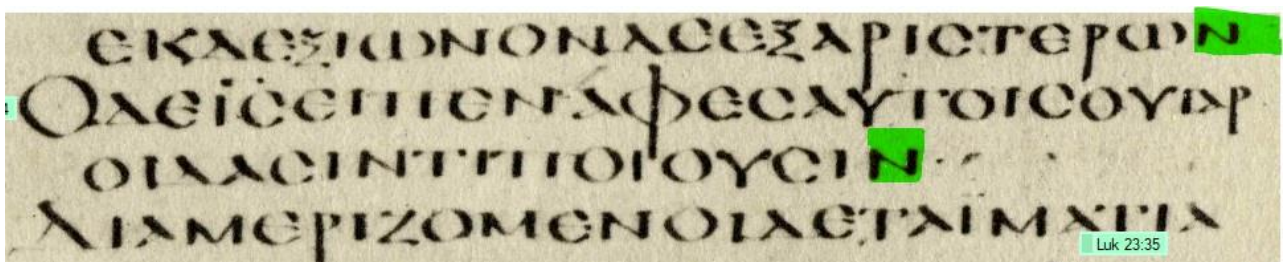 ΕΚΔΕΞΙΩΝΟΝΔΕΕΞΑΡΙCΤΕΡΩΝ
4 ΟΔΕΪCΕΙΠΕΝΑΦΕCΑΥΤΟΙCΟΥΓΑΡ
ΟΙΔΑCΙΝΤΙΠΟΙΟΥCΙΝ
ΔΙΑΜΕΡΙΖΟΜΕΝΟΙΔΕΤΑΪΜΑΤΙΑ
Luk 23:35